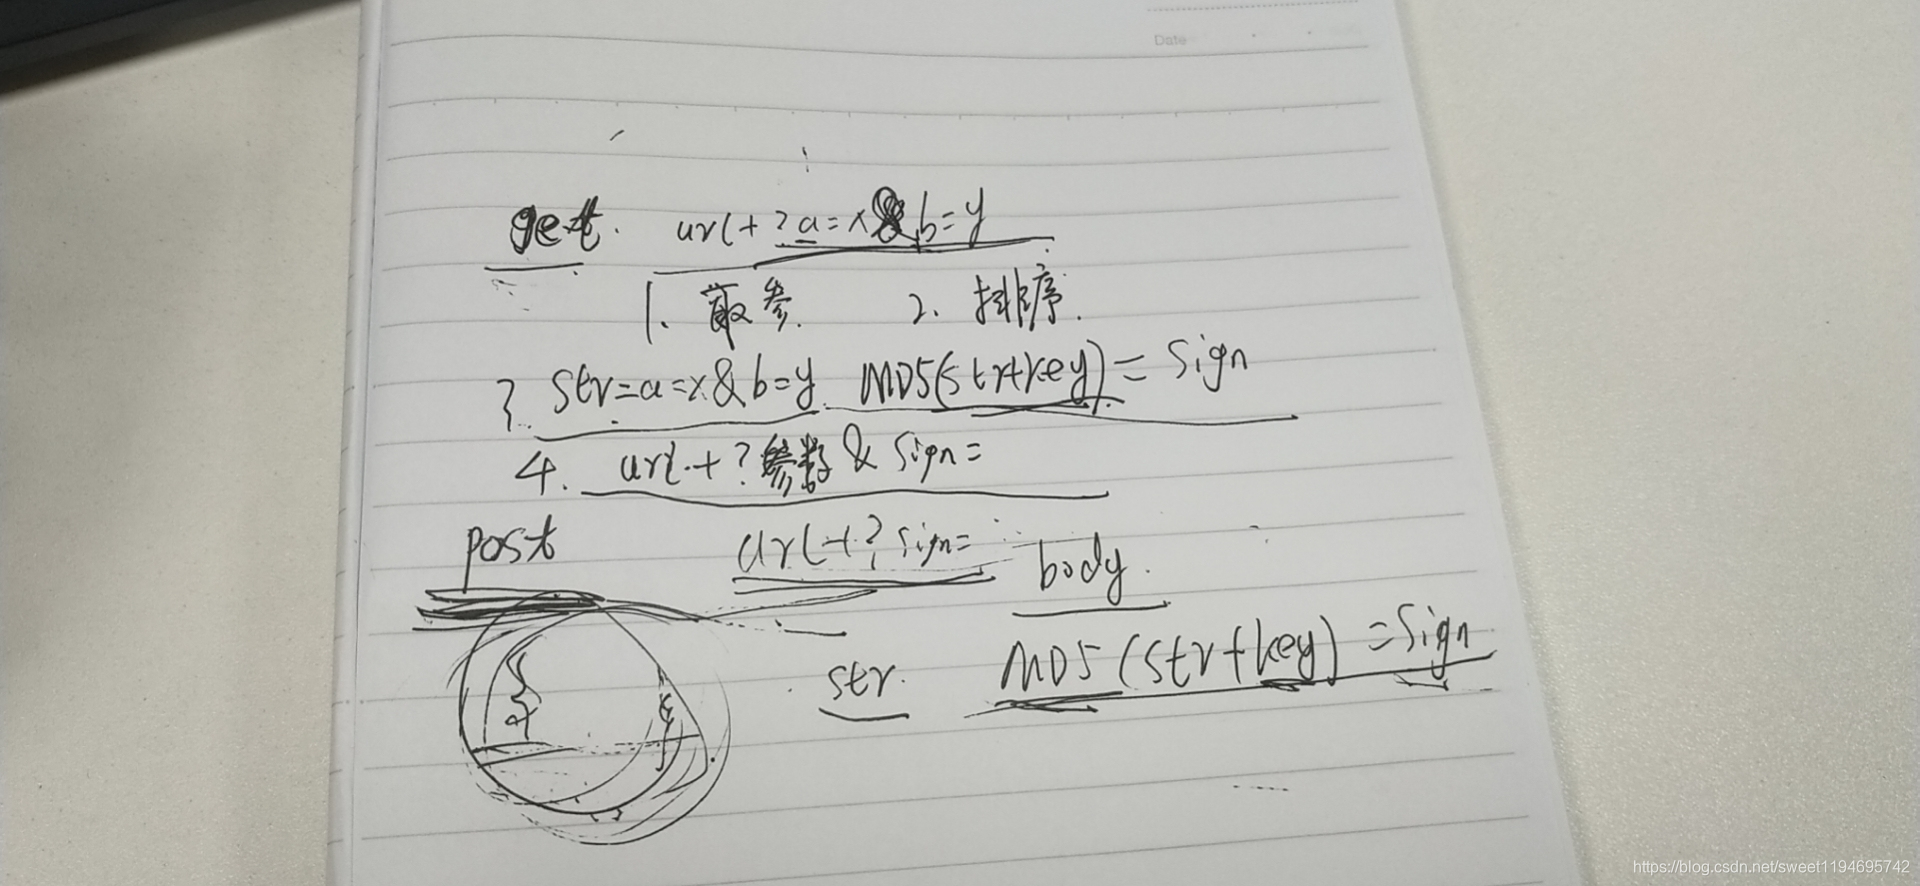 Date
get. url+?a=x&b=y
1. 取参. 2. 排序.
3. str=a=x&b=y MD5(str+key)=Sign
4. url+?参数&Sign=
post url+?sign= body.
str. MD5(str+key)=Sign
https://blog.csdn.net/sweet1194695742